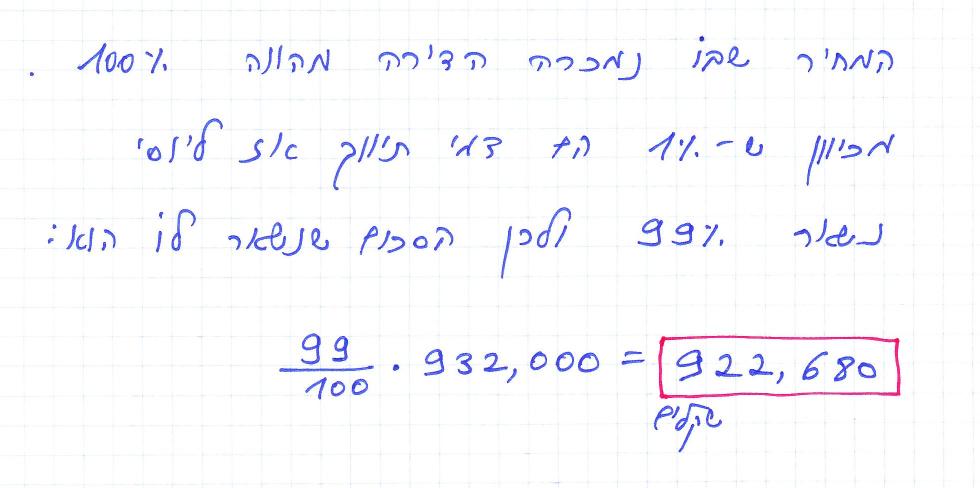 המחיר שבו נמכרה הדירה מהווה 100% .
מכיוון ש-1% הם דמי תיווך אז ליוסי
נשאר 99% ולכן הסכום שנשאר לו הוא:
99/100 · 932,000 = 922,680
שקלים